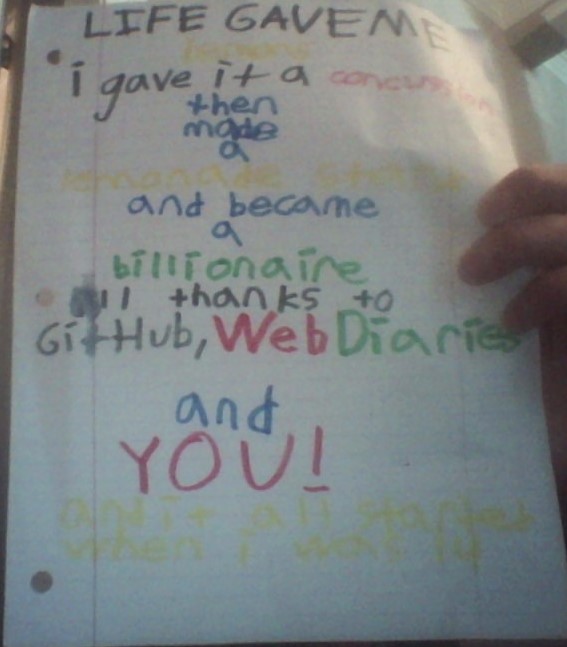 LIFE GAVE ME
lemons
i gave it a concussion
then
made
a
lemonade stand
and became
a
billionaire
all thanks to
GitHub, WebDiaries
and
YOU!
and it all started
when i was 14